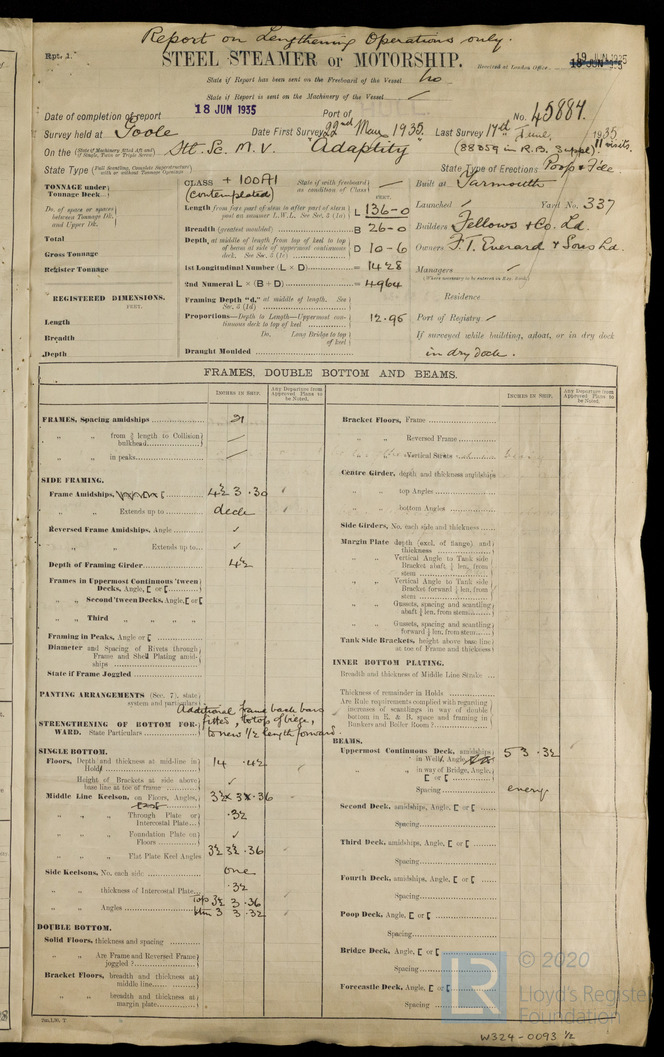 Report on Lengthening Operations only.
Rpt. 1.
STEEL STEAMER or MOTORSHIP.
19 JUN 1935
Received at London Office
State if Report has been sent on the Freeboard of the Vessel No
State if Report is sent on the Machinery of the Vessel
Date of completion of report 18 JUN 1935 Port of No. 45887
Survey held at Goole Date First Survey 22nd May 1935. Last Survey 17th June, 1935
11 visits.
On the Stl. Sc. M. V. "Adaptity" (88359 in R.B. Suppl).
State Type State Type of Erections Poop & F'cle
TONNAGE under Tonnage Deck
Do. of space or spaces between Tonnage Dk. and Upper Dk.
Total
Gross Tonnage
Register Tonnage
REGISTERED DIMENSIONS.
FEET.
Length
Breadth
Depth
CLASS + 100A1
(contemplated)
State if with freeboard as condition of Class
FEET.
Length from fore part of stem to after part of stern post on summer L.W.L. See Sec. 3 (1c) L 136-0
Breadth (greatest moulded) B 26-0
Depth, at middle of length from top of keel to top of beam at side of uppermost continuous deck. See Sec. 3 (1c) D 10-6
1st Longitudinal Number (L × D) = 1428
2nd Numeral L × (B + D) = 4964
Framing Depth "d," at middle of length. See Sec. 3 (1d)
Proportions—Depth to Length—Uppermost continuous deck to top of keel 12.95
Do. Long Bridge to top of keel
Draught Moulded
Built at Yarmouth
Launched Yard No. 337
Builders Fellows & Co. Ld.
Owners F. T. Everard & Sons Ld.
Managers
(Where necessary to be entered in Reg. Book)
Residence
Port of Registry
If surveyed while building, afloat, or in dry dock
in dry dock.
FRAMES, DOUBLE BOTTOM AND BEAMS.
INCHES IN SHIP.
Any Departure from Approved Plans to be Noted.
FRAMES, Spacing amidships 21
„ „ from ⅗ length to Collision bulkhead
„ „ in peaks
SIDE FRAMING.
Frame Amidships, [ 4½ 3 .30
„ „ Extends up to deck
Reversed Frame Amidships, Angle ✓
„ „ Extends up to ✓
Depth of Framing Girder 4½
Frames in Uppermost Continuous 'tween Decks, Angle, [ or [
„ „ Second 'tween Decks, Angle, [ or [
„ „ Third „ „ „ „
Framing in Peaks, Angle or [
Diameter and Spacing of Rivets through Frame and Shell Plating amidships
State if Frame Joggled
PANTING ARRANGEMENTS (Sec. 7), state system and particulars
STRENGTHENING OF BOTTOM FORWARD. State Particulars
Additional frame back bars
fitted, to top of bilge,
to new ½ length forward.
SINGLE BOTTOM.
Floors, Depth and thickness at mid-line in Hold 14 .42
Height of Brackets at side above base line at toe of frame ✓
Middle Line Keelson, on Floors, Angles, 3½ × 3½ .36
„ „ Through Plate or Intercostal Plate .32
„ „ Foundation Plate on Floors ✓
„ „ Flat Plate Keel Angles 3½ 3½ .36
Side Keelsons, No. each side one
„ „ thickness of Intercostal Plate .32
„ „ Angles Top 3½ 3 .36
Btm 3 3 .32
DOUBLE BOTTOM.
Solid Floors, thickness and spacing
„ „ Are Frame and Reversed Frame joggled?
Bracket Floors, breadth and thickness at middle line
„ „ breadth and thickness at margin plate
INCHES IN SHIP.
Any Departure from Approved Plans to be Noted.
Bracket Floors, Frame
„ „ Reversed Frame
„ „ Vertical Struts
Centre Girder, depth and thickness amidships
„ „ top Angles
„ „ bottom Angles
Side Girders, No. each side and thickness
Margin Plate depth (excl. of flange) and thickness
„ „ Vertical Angle to Tank side Bracket abaft ¼ len. from stem
„ „ Vertical Angle to Tank side Bracket forward ¼ len. from stem
„ „ Gussets, spacing and scantling abaft ¼ len. from stem
„ „ Gussets, spacing and scantling forward ¼ len. from stem
Tank Side Brackets, height above base line at toe of Frame and thickness
INNER BOTTOM PLATING.
Breadth and thickness of Middle Line Strake
Thickness of remainder in Holds
Are Rule requirements complied with regarding increases of scantlings in way of double bottom in E. & B. space and framing in Bunkers and Boiler Room?
BEAMS.
Uppermost Continuous Deck, amidships in Well, Angle, 5 3 .32
„ „ in way of Bridge, Angle, [ or [
Spacing every
Second Deck, amidships, Angle, [ or [
Spacing
Third Deck, amidships, Angle, [ or [
Spacing
Fourth Deck, amidships, Angle, [ or [
Spacing
Poop Deck, Angle, [ or [
Spacing
Bridge Deck, Angle, [ or [
Spacing
Forecastle Deck, Angle, [ or [
Spacing
© 2020
LR
Lloyd's Register
Foundation
W324-0093 ½